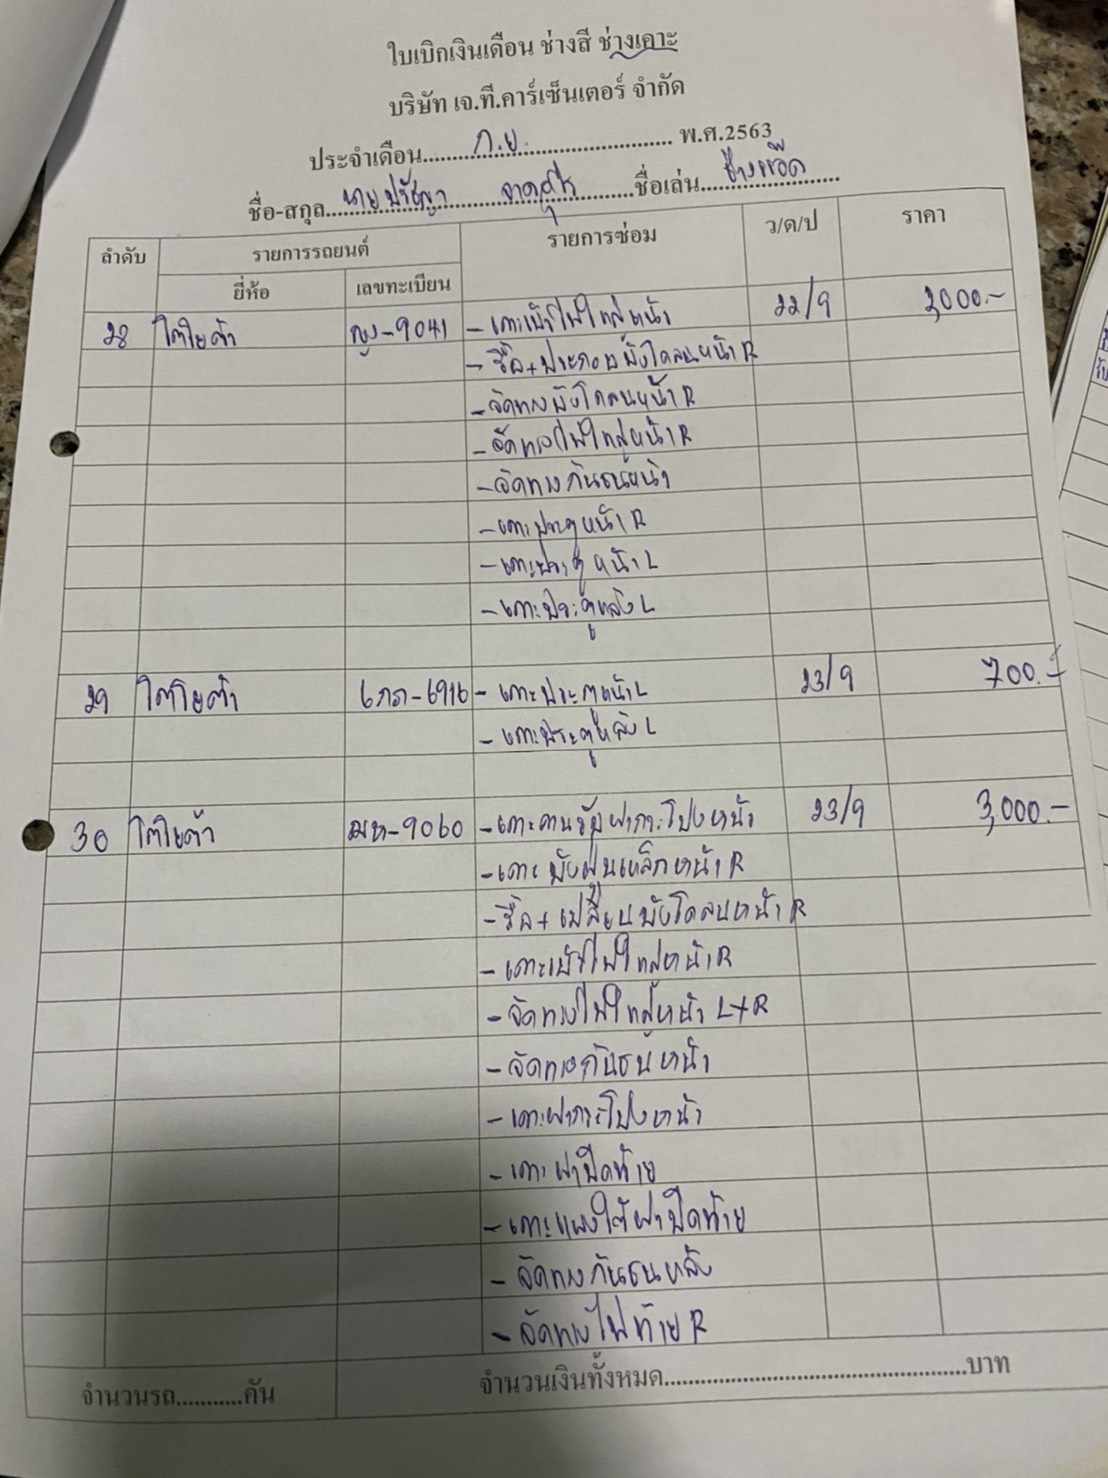 ใบเบิกเงินเดือน ช่างสี ช่างเคาะ
บริษัท เจ.ที.คาร์เซ็นเตอร์ จำกัด
ประจำเดือน ก.ย. พ.ศ.2563
ชื่อ-สกุล นายปรัชญา ชื่อเล่น ช่าง
ลำดับ รายการรถยนต์ รายการซ่อม ว/ด/ป ราคา
ยี่ห้อ เลขทะเบียน
28 โตโยต้า -9041 - เคาะเบ้าไฟใหญ่หน้า 22/9 2,000.-
- รื้อ+ประกอบบังโคลนหน้า R
- จัดทรงบังโคลนหน้า R
- จัดทรงไฟใหญ่หน้า R
- จัดทรงกันชนหน้า
- เคาะประตูหน้า R
- เคาะประตูหน้า L
- เคาะประตูหลัง L
29 โตโยต้า 6กก-6916 - เคาะประตูหน้า L 23/9 700.-
- เคาะประตูหลัง L
30 โตโยต้า ฌห-9060 - เคาะคานรับฝากระโปรงหน้า 23/9 3,000.-
- เคาะบังฝุ่นเหล็กหน้า R
- รื้อ+เปลี่ยนบังโคลนหน้า R
- เคาะเบ้าไฟใหญ่หน้า R
- จัดทรงไฟใหญ่หน้า L+R
- จัดทรงกันชนหน้า
- เคาะฝากระโปรงหน้า
- เคาะฝาปิดท้าย
- เคาะแผงใต้ฝาปิดท้าย
- จัดทรงกันชนหลัง
- จัดทรงไฟท้าย R
จำนวนรถ...........คัน จำนวนเงินทั้งหมด...............................................บาท